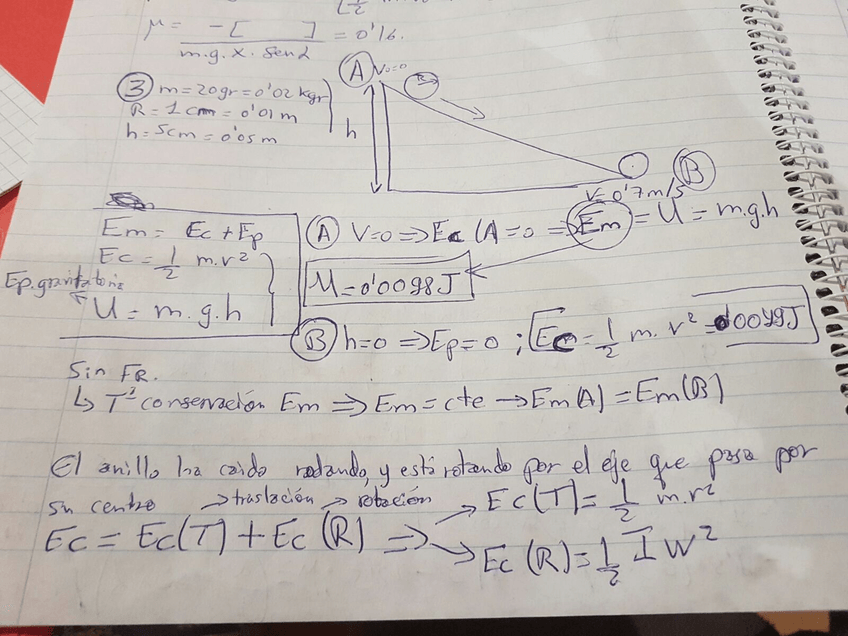 μ = -[ ] / m.g.x.senα = 0'16.
③ m = 20gr = 0'02 kgr
R = 1cm = 0'01 m
h = 5cm = 0'05 m
Ⓐ V=0
R
h
Ⓑ
V=0'7m/s
Em = Ec + Ep
Ec = 1/2 m.v²
Ep.gravitatoria
U = m.g.h
Ⓐ V=0 ⇒ Ec(A=0 ⇒ Em = U = m.g.h
U = 0'0098J
Ⓑ h=0 ⇒ Ep=0 ; Ec = 1/2 m.v² = 0'0049J
Sin FR.
↳ Tª conservación Em ⇒ Em = cte → Em(A) = Em(B)
El anillo ha caido rodando, y está rotando por el eje que pasa por
su centro → traslación → rotación
Ec = Ec(T) + Ec(R) ⇒
Ec(T) = 1/2 m.v²
Ec(R) = 1/2 I W²